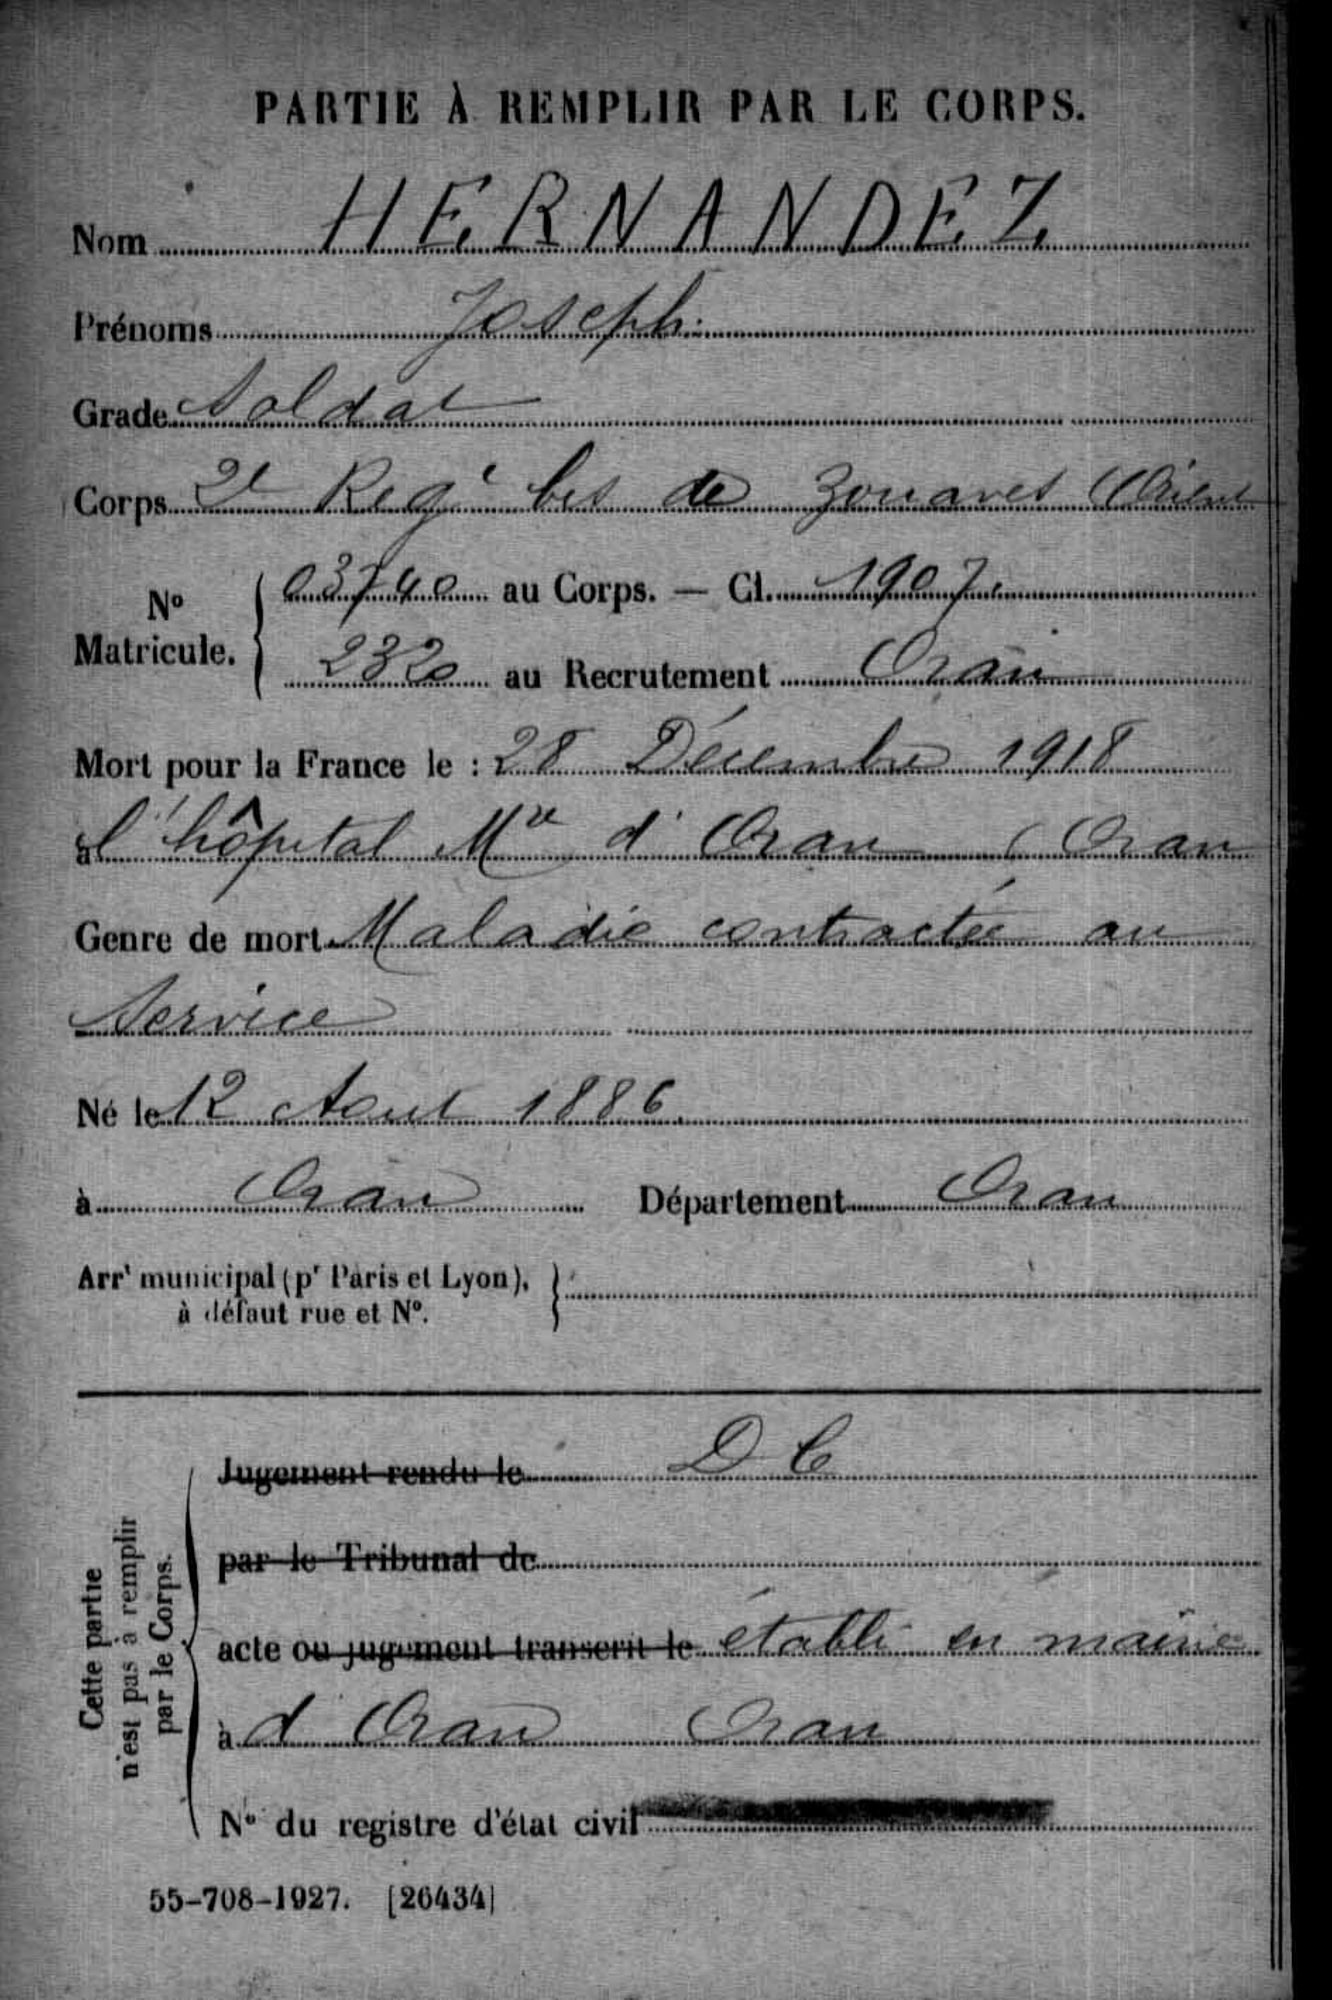 PARTIE À REMPLIR PAR LE CORPS.
Nom HERNANDEZ
Prénoms Joseph.
Grade Soldat
Corps 2e Regt bis de Zouaves (Orient
No Matricule. 03740 au Corps. — Cl. 1907.
2320 au Recrutement Oran
Mort pour la France le : 28 Décembre 1918
à l'hôpital Mre d'Oran (Oran
Genre de mort Maladie contractée au
Service
Né le 12 Aout 1886.
à Oran Département Oran
Arrt municipal (pr Paris et Lyon),
à défaut rue et No.
Cette partie
n'est pas à remplir
par le Corps.
Jugement rendu le DC
par le Tribunal de
acte ou jugement transcrit le établi en mairie
à d'Oran Oran
No du registre d'état civil
55-708-1927. [26434]